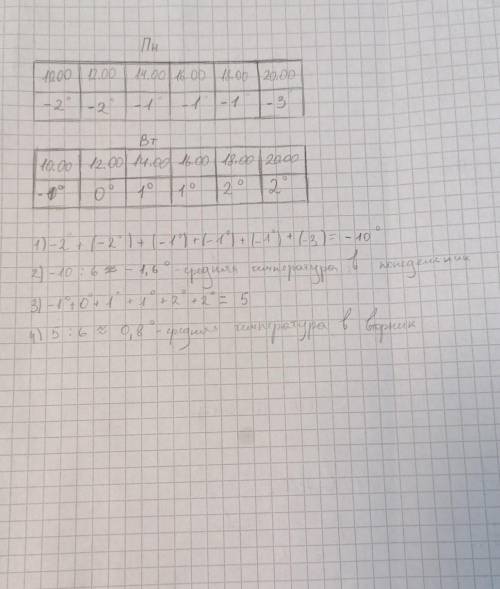 Пн
10.00 12.00 14.00 16.00 18.00 20.00
-2° -2° -1° -1° -1° -3°
Вт
10.00 12.00 14.00 16.00 18.00 20.00
-1° 0° 1° 1° 2° 2°
1) -2° + (-2°) + (-1°) + (-1°) + (-1°) + (-3) = -10°
2) -10 : 6 ≈ -1,6° - средняя температура в понедельник
3) -1° + 0° + 1° + 1° + 2° + 2° = 5
4) 5 : 6 ≈ 0,8° - средняя температура в вторник